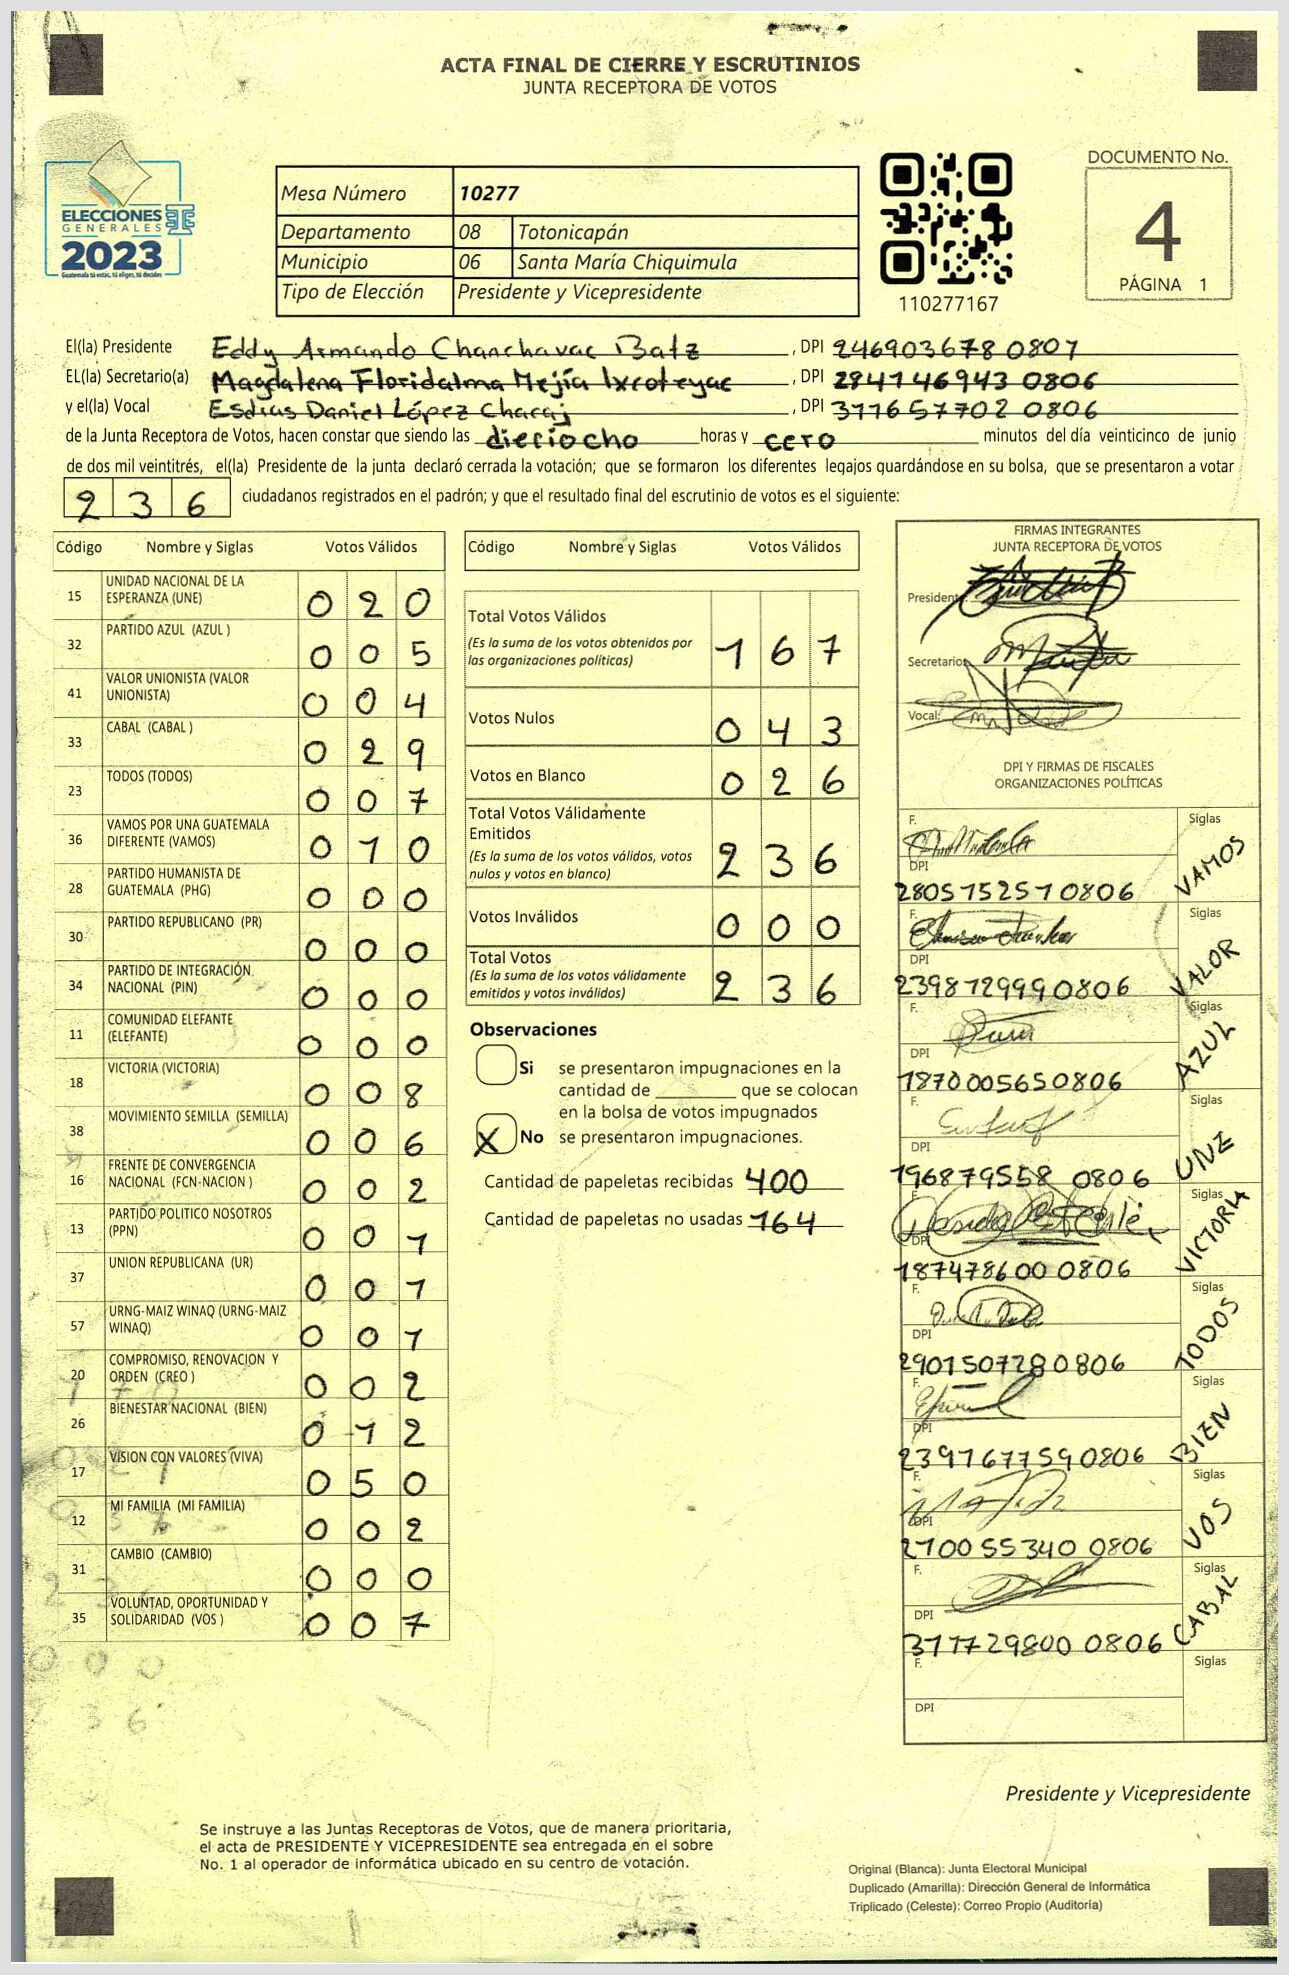 ACTA FINAL DE CIERRE Y ESCRUTINIOS
JUNTA RECEPTORA DE VOTOS
ELECCIONES
GENERALES
2023
Guatemala tú votas, tú eliges, tú decides
Mesa Número 10277
Departamento 08 Totonicapán
Municipio 06 Santa María Chiquimula
Tipo de Elección Presidente y Vicepresidente
110277167
DOCUMENTO No.
4
PÁGINA 1
El(la) Presidente Eddy Armando Chanchavac Batz , DPI 246903678 0807
EL(la) Secretario(a) Magdalena Floridalma Mejía Ixcoteyac , DPI 284146943 0806
y el(la) Vocal Esdias Daniel López Chacaj , DPI 311657702 0806
de la Junta Receptora de Votos, hacen constar que siendo las dieciocho horas y cero minutos del día veinticinco de junio
de dos mil veintitrés, el(la) Presidente de la junta declaró cerrada la votación; que se formaron los diferentes legajos guardándose en su bolsa, que se presentaron a votar
236 ciudadanos registrados en el padrón; y que el resultado final del escrutinio de votos es el siguiente:
Código Nombre y Siglas Votos Válidos
15 UNIDAD NACIONAL DE LA ESPERANZA (UNE) 020
32 PARTIDO AZUL (AZUL ) 005
41 VALOR UNIONISTA (VALOR UNIONISTA) 004
33 CABAL (CABAL ) 029
23 TODOS (TODOS) 007
36 VAMOS POR UNA GUATEMALA DIFERENTE (VAMOS) 010
28 PARTIDO HUMANISTA DE GUATEMALA (PHG) 000
30 PARTIDO REPUBLICANO (PR) 000
34 PARTIDO DE INTEGRACIÓN NACIONAL (PIN) 000
11 COMUNIDAD ELEFANTE (ELEFANTE) 000
18 VICTORIA (VICTORIA) 008
38 MOVIMIENTO SEMILLA (SEMILLA) 006
16 FRENTE DE CONVERGENCIA NACIONAL (FCN-NACION ) 002
13 PARTIDO POLITICO NOSOTROS (PPN) 001
37 UNION REPUBLICANA (UR) 001
57 URNG-MAIZ WINAQ (URNG-MAIZ WINAQ) 001
20 COMPROMISO, RENOVACION Y ORDEN (CREO ) 002
26 BIENESTAR NACIONAL (BIEN) 012
17 VISION CON VALORES (VIVA) 050
12 MI FAMILIA (MI FAMILIA) 002
31 CAMBIO (CAMBIO) 000
35 VOLUNTAD, OPORTUNIDAD Y SOLIDARIDAD (VOS ) 007
Código Nombre y Siglas Votos Válidos
Total Votos Válidos 167
(Es la suma de los votos obtenidos por
las organizaciones políticas)
Votos Nulos 043
Votos en Blanco 026
Total Votos Válidamente
Emitidos 236
(Es la suma de los votos válidos, votos
nulos y votos en blanco)
Votos Inválidos 000
Total Votos 236
(Es la suma de los votos válidamente
emitidos y votos inválidos)
Observaciones
Si se presentaron impugnaciones en la
cantidad de ________ que se colocan
en la bolsa de votos impugnados
X No se presentaron impugnaciones.
Cantidad de papeletas recibidas 400
Cantidad de papeletas no usadas 164
FIRMAS INTEGRANTES
JUNTA RECEPTORA DE VOTOS
Presidente:
Secretario:
Vocal:
DPI Y FIRMAS DE FISCALES
ORGANIZACIONES POLÍTICAS
F. Siglas VAMOS
DPI
280515251 0806
F. Siglas VALOR
DPI
239812999 0806
F. Siglas AZUL
DPI
187000565 0806
F. Siglas UNE
DPI
196879558 0806
F. Siglas VICTORIA
DPI
187478600 0806
F. Siglas TODOS
DPI
290150728 0806
F. Siglas BIEN
DPI
239167759 0806
F. Siglas VOS
DPI
270055340 0806
F. Siglas CABAL
DPI
311729800 0806
F. Siglas
DPI
Presidente y Vicepresidente
Se instruye a las Juntas Receptoras de Votos, que de manera prioritaria,
el acta de PRESIDENTE Y VICEPRESIDENTE sea entregada en el sobre
No. 1 al operador de informática ubicado en su centro de votación.
Original (Blanca): Junta Electoral Municipal
Duplicado (Amarilla): Dirección General de Informática
Triplicado (Celeste): Correo Propio (Auditoría)